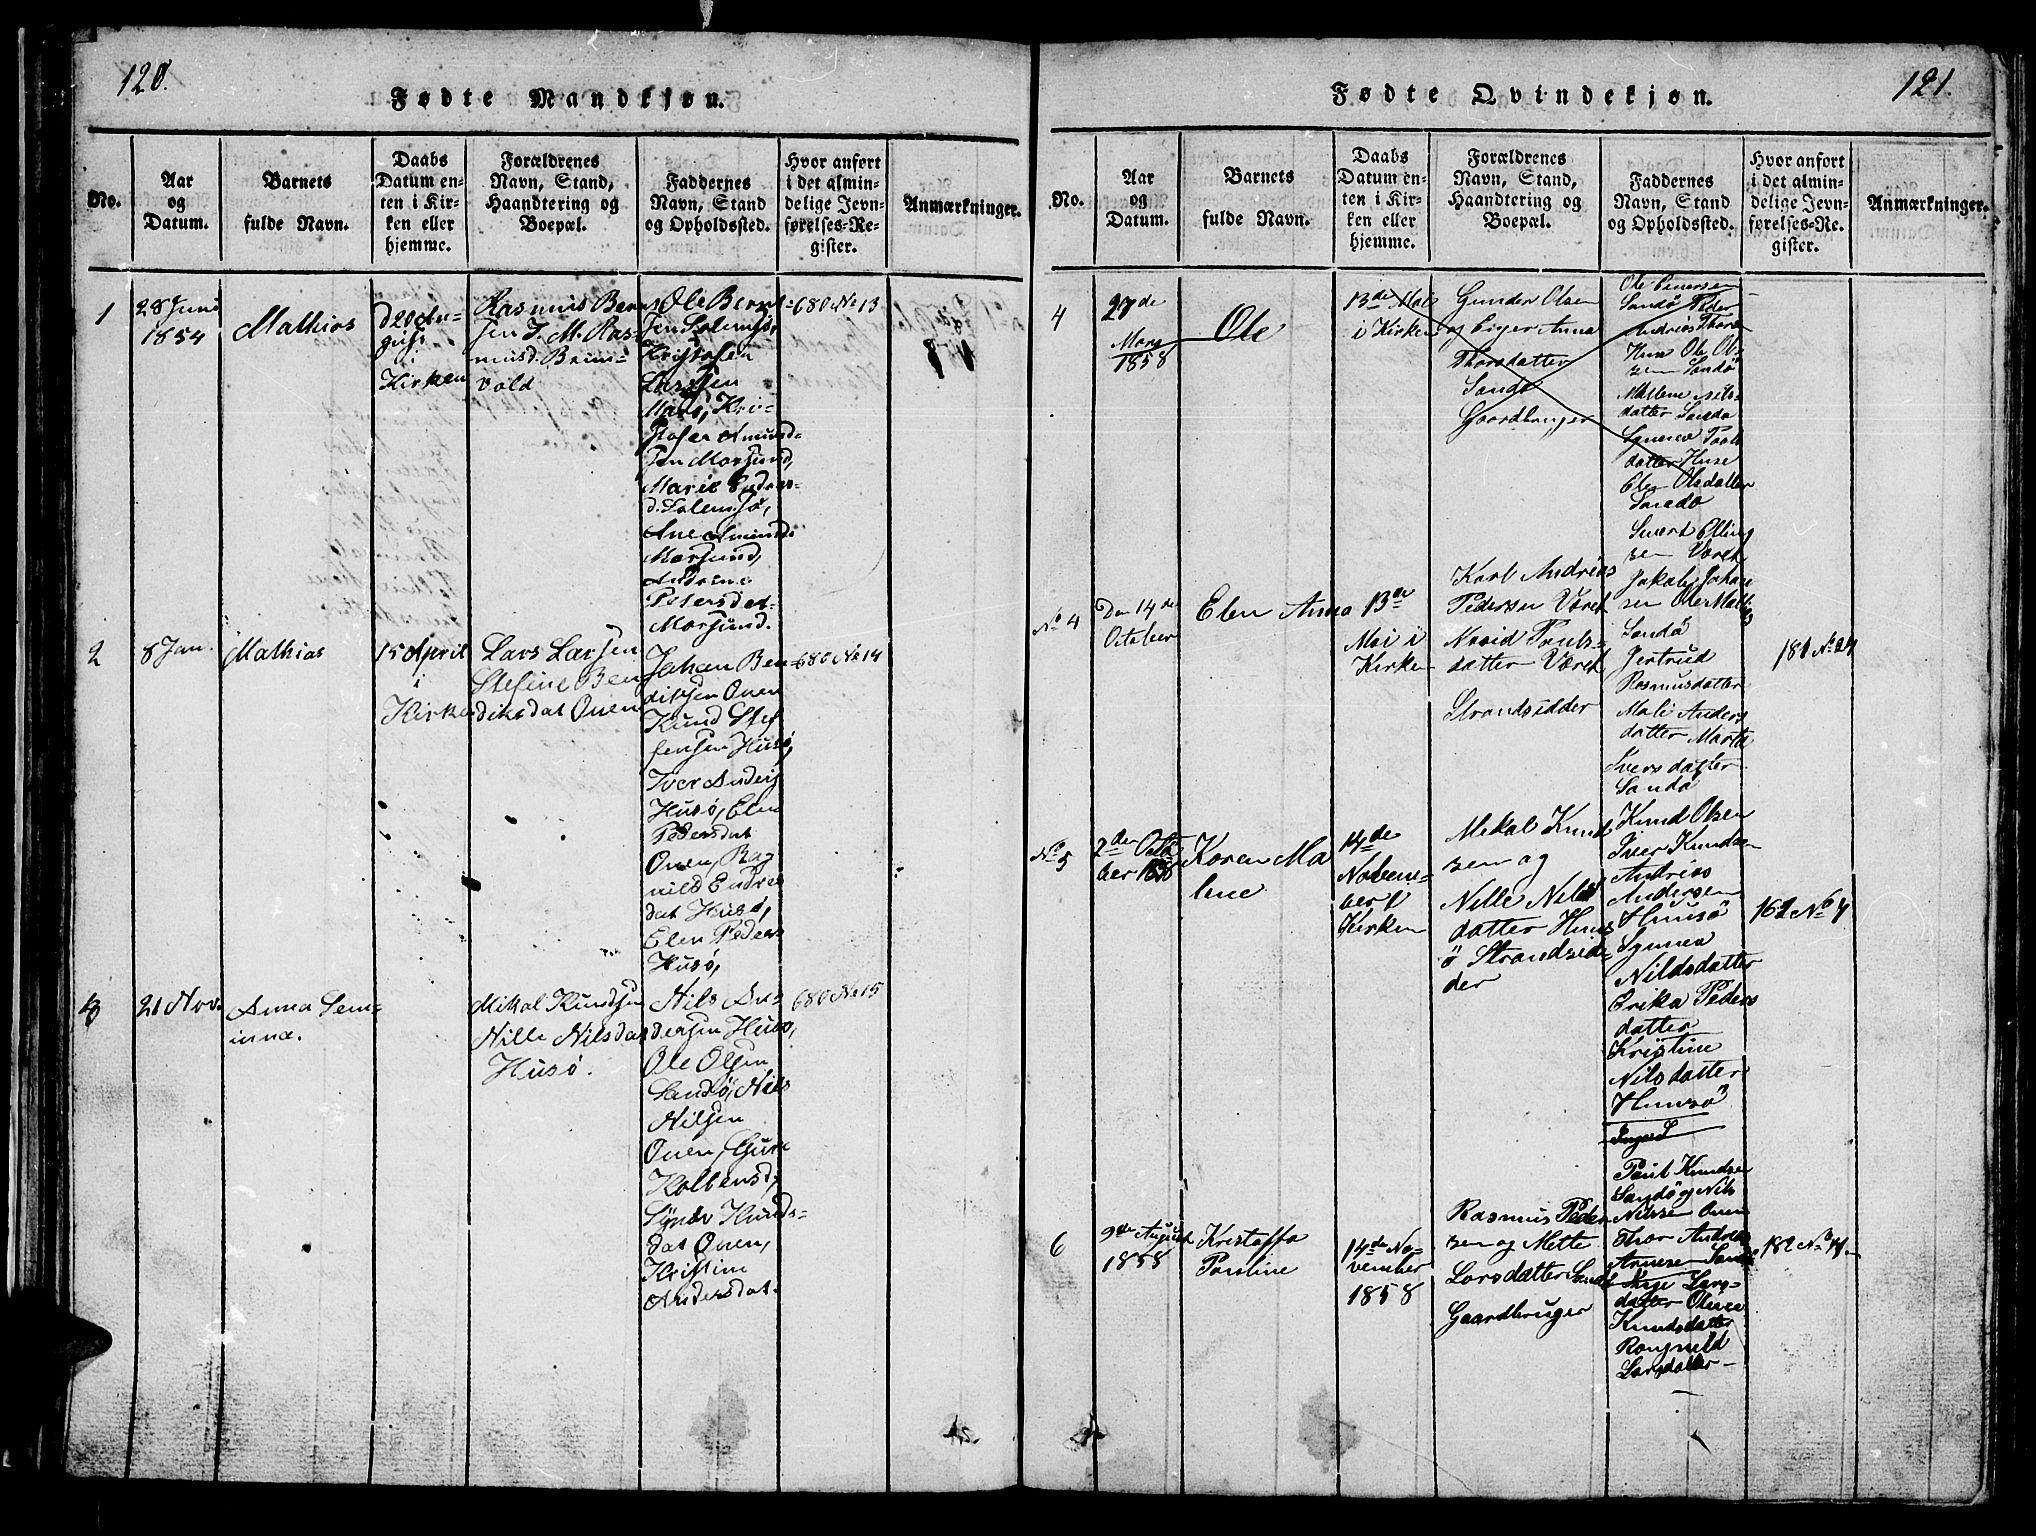 120.
Fødte Mandkjøn.
No.
Aar
og
Datum.
Barnets
fulde Navn.
Daabs
Datum en-
ten i Kir-
ken eller
hjemme.
Forældrenes
Navn, Stand,
Haandtering og
Boepæl.
Faddernes
Navn, Stand
og Opholdssted.
Hvor anført
i det almin-
delige Jevn-
førelses-Re-
gister.
Anmærkninger.
1
28 Juni
1854
Mathias
d 20 Au-
gust
i
Kirken
Rasmus Bern
sen I. M. Ras-
musd. Brem-
vold
Ole Bernt
sen Solemsø,
Kristofen
Larssen
Kri-
stofer Amund-
sen Morsund,
Marie
d. Solemsø,
Ane Amunds
Morsund,
Petersdat
Morsund.
680 No 13
2
8 Jan.
Mathias
15 April
i
Kirke
Lars Larsen
Stefine Ben
diksdat Onen
Johan Ben
diksen Onen
Knud Stef
fensen Husø,
Iver Anders
Husø, Elen
Pedersdat
Onen, Rag
nild Endres
dat Husø,
Elen Peders
Husø,
680 No 14
3
21 Nov.
Anna Sem-
inna.
Mikal Knudsen
Nille Nilsdat
Husø.
Nils An-
dersen Husø,
Ole Olsen
Sandø, Nils
Nilsen
Onen, Guri
Kolbensd,
Synøv Knuds-
dat Onen,
Kristine
Andersdat.
680 No 15
121.
Fødte Qvindekjøn.
No.
Aar
og
Datum.
Barnets
fulde Navn.
Daabs
Datum en-
ten i Kir-
ken eller
hjemme.
Forældrenes
Navn, Stand,
Haandtering og
Boepæl.
Faddernes
Navn, Stand
og Opholdssted.
Hvor anført
i det almin-
delige Jevn-
førelses-Re-
gister.
Anmærkninger.
4
27de
Marg
1858
Ole
13de Mai
i Kirken
Gunder Olsen
og Anna
Thorsdatter
Sandø
Gaardbruger
Ole
Sandø Peder
Andreas
Ole Ol-
sen Sandø
Malene Nils-
datter Sandø
Synnev Pauls
datter Huse
Elen Olsdatter
Sandø
No 4
Den 14de
October
Elen Anna
13de
Mai i
Kirken
Karl Andreas
Pedersen Været
datter Været
Strandsidder
Sivert Elling
sen Været
Jakob Johan
sen Ole
Sandø
Gertrud
Rasmusdatter
Mali Anders
datter Marta
Iversdatter
Sandø
181 No 24
No 5
2den Octo
ber 1858
Karen Ma
lene
14de
Novem-
ber i
Kirken
Mekal Knud
sen og
Nille Nils
datter Huus
ö Strandsid-
der
Knud Olsen
Iver Knudsen
Andreas
Andersen
Huusö
Synnev
Nilsdatter
Erika Peders
datter
Kristine
Nilsdatter
Huusö
162 No 4
6
9de August
1858
Kristoffa
Pauline
14de No-
vember
1858
Rasmus Peder
sen og Mette
Larsdatter Sandö
Gaardbruger
Paul Knudsen
Sandö og Nils
Nilsen Onen
Thor Andreas
Arnesen Sandö
Lars-
datter Oline
Knudsdatter
Rangnild
Larsdatter
182 No 14